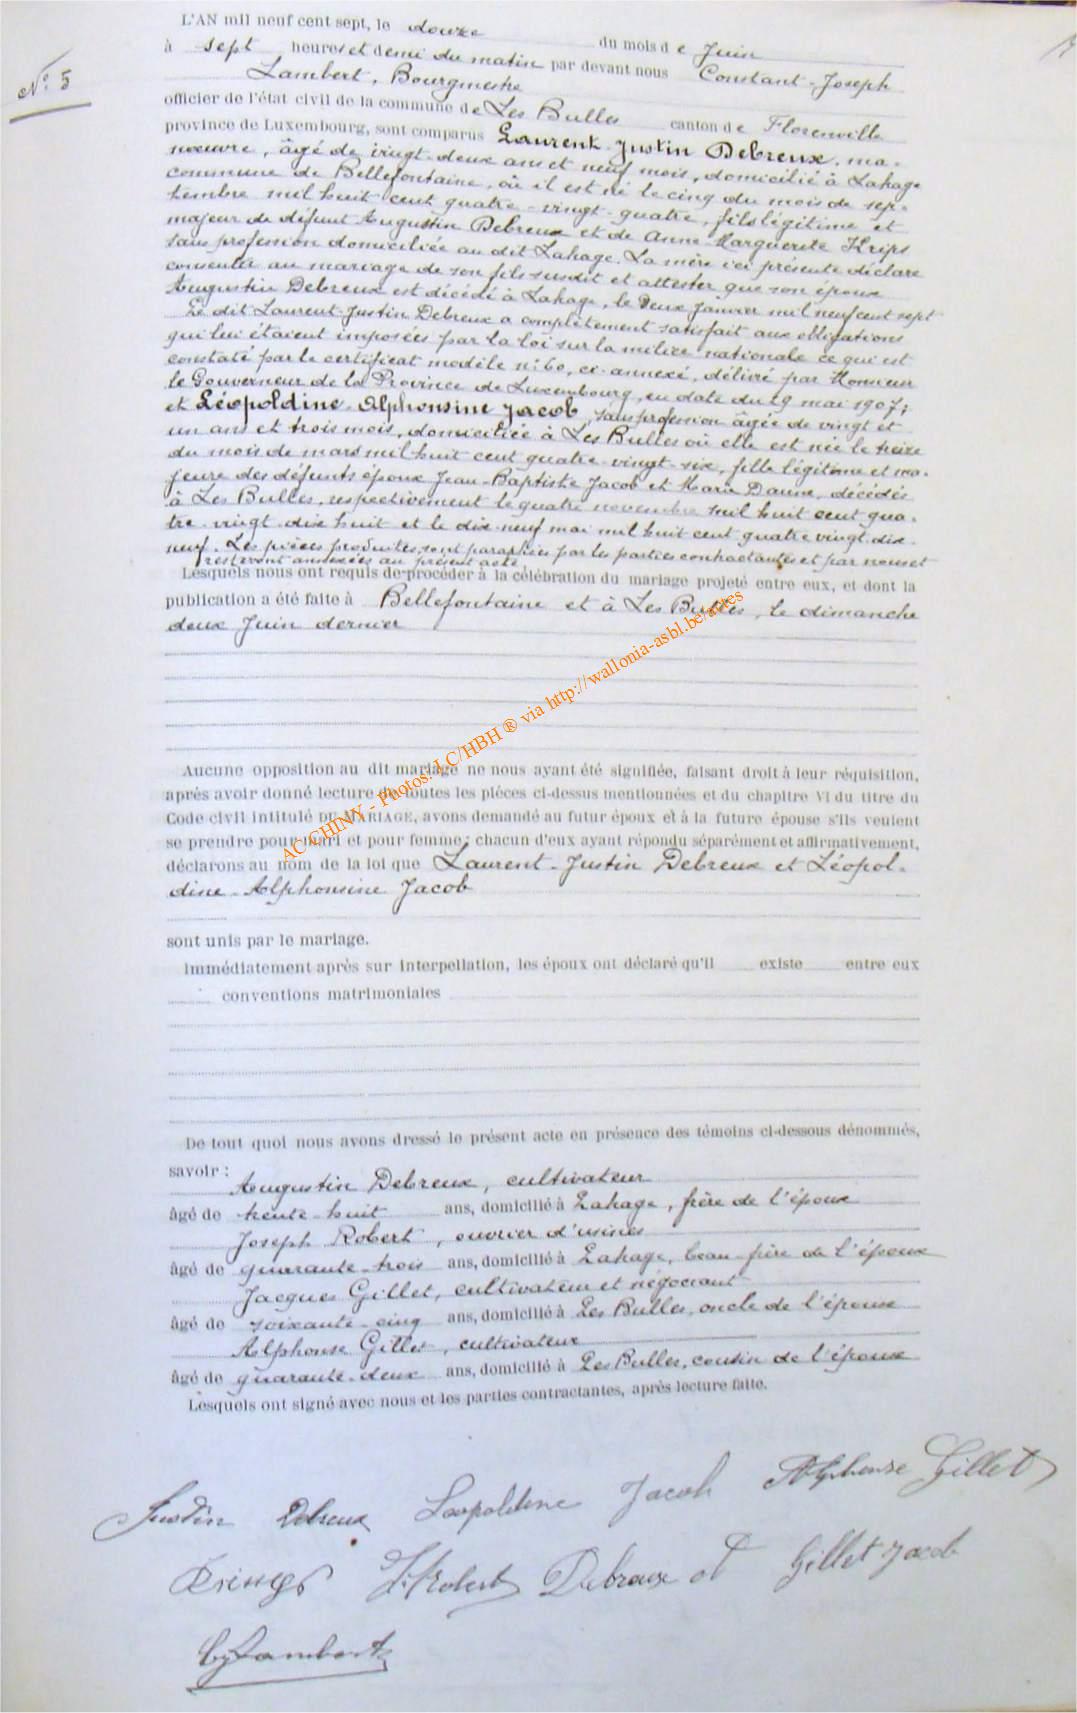 L'AN mil neuf cent sept, le douze du mois de Juin
à sept heures et demi du matin par devant nous Constant-Joseph
N° 5
Lambert, Bourgmestre
officier de l'état civil de la commune de Les Bulles canton de Florenville
province de Luxembourg, sont comparus Laurent-Justin Debreux, ma-
nœuvre, âgé de vingt-deux ans et neuf mois, domicilié à Lahage
commune de Bellefontaine, où il est né le cinq du mois de sep-
tembre mil huit cent quatre-vingt-quatre, fils légitime et
majeur de défunt Augustin Debreux et de Anne-Marguerite Krips
sans profession domiciliée au dit Lahage. La mère ici présente déclare
consentir au mariage de son fils susdit et attester que son époux
Augustin Debreux est décédé à Lahage, le deux Janvier mil neuf cent sept
Le dit Laurent-Justin Debreux a complètement satisfait aux obligations
qui lui étaient imposées par la loi sur la milice nationale ce qui est
constaté par le certificat modèle n° 60, ci-annexé, délivré par Monsieur
le Gouverneur de la Province de Luxembourg, en date du 29 mai 1907;
et Léopoldine-Alphonsine Jacob, sans profession âgée de vingt et
un ans et trois mois, domiciliée à Les Bulles où elle est née le treize
du mois de mars mil huit cent quatre-vingt-six, fille légitime et ma-
jeure des défunts époux Jean-Baptiste Jacob et Marie Daune, décédés
à Les Bulles, respectivement le quatre novembre mil huit cent qua-
tre-vingt-dix huit et le dix-neuf mai mil huit cent quatre vingt-dix-
neuf. Les pièces produites, sont paraphées par les parties contractantes et par nous et
resteront annexées au présent acte
Lesquels nous ont requis de procéder à la célébration du mariage projeté entre eux, et dont la
publication a été faite à Bellefontaine et à Les Bulles, le dimanche
deux Juin dernier
Aucune opposition au dit mariage ne nous ayant été signifiée, faisant droit à leur réquisition,
après avoir donné lecture de toutes les pièces ci-dessus mentionnées et du chapitre VI du titre du
Code civil intitulé DU MARIAGE, avons demandé au futur époux et à la future épouse s'ils veulent
se prendre pour mari et pour femme; chacun d'eux ayant répondu séparément et affirmativement,
déclarons au nom de la loi que Laurent-Justin Debreux et Léopol-
dine-Alphonsine Jacob
sont unis par le mariage.
Immédiatement après sur interpellation, les époux ont déclaré qu'il existe entre eux
conventions matrimoniales
De tout quoi nous avons dressé le présent acte en présence des témoins ci-dessous dénommés,
savoir :
Augustin Debreux, cultivateur
âgé de trente-huit ans, domicilié à Lahage, frère de l'époux
Joseph Robert, ouvrier d'usines
âgé de quarante-trois ans, domicilié à Lahage, beau-frère de l'époux
Jacques Gillet, cultivateur et négociant
âgé de soixante-cinq ans, domicilié à Les Bulles, oncle de l'épouse
Alphonse Gillet, cultivateur
âgé de quarante-deux ans, domicilié à Les Bulles, cousin de l'épouse
Lesquels ont signé avec nous et les parties contractantes, après lecture faite.
Justin Debreux Léopoldine Jacob Alphonse Gillet
J. Robert Debreux Gillet Jacob
Lambert
AC/CHINY - Photos: LC/HBH ® via http://wallonia-asbl.be/actes